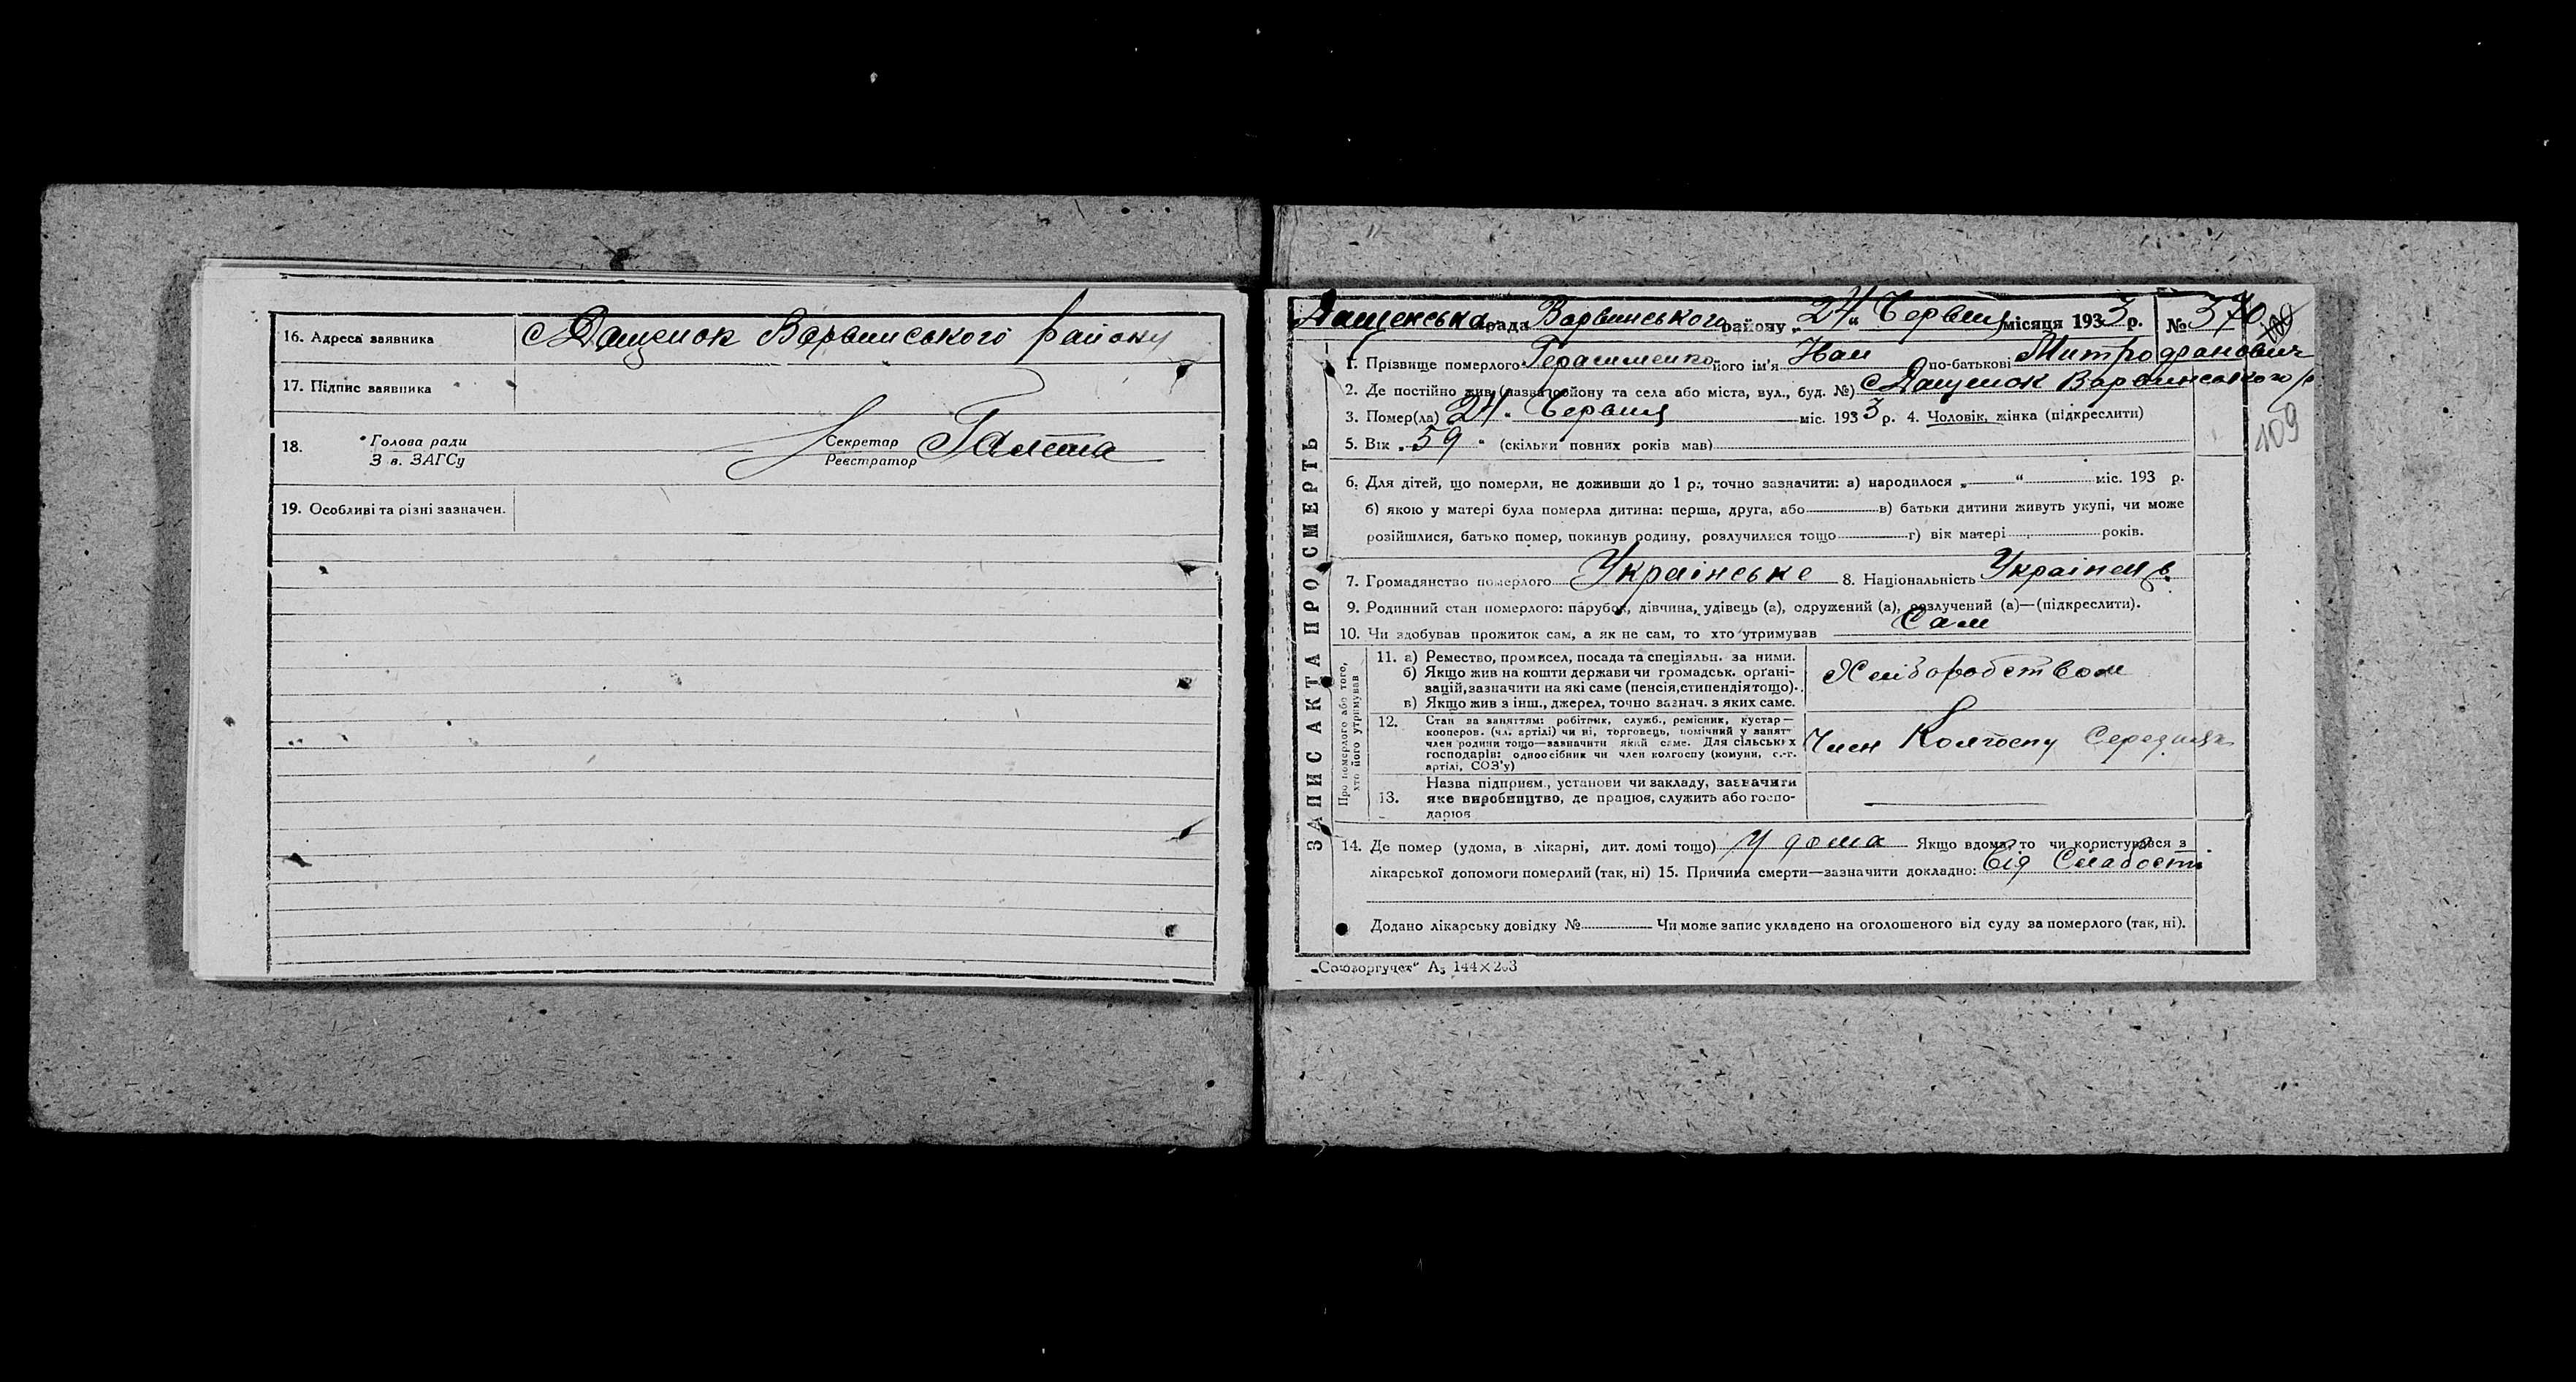 16. Адреса заявника с Дащенок Варвинського району
17. Підпис заявника
18. Голова ради Секретар
З в. ЗАГСу Реєстратор
19. Особливі та різні зазначен.
Дащенська рада Варвинського району „24“ Червня місяця 1933 р. № 370
1. Прізвище померлого Герасименко його ім'я Иван по-батькові Митрофанович
2. Де постійно жив (назва району та села або міста, вул., буд. №) с Дащенок Варвинського р
3. Помер(ла) 24 " Червня міс. 1933 р. 4. Чоловік, жінка (підкреслити)
109
5. Вік „ 59 " (скільки повних років мав)
6. Для дітей, що померли, не доживши до 1 р., точно зазначити: а) народилося „ “ міс. 193 р.
б) якою у матері була померла дитина: перша, друга, або в) батьки дитини живуть укупі, чи може
розійшлися, батько помер, покинув родину, розлучилися тощо г) вік матері років.
7. Громадянство померлого Українське 8. Національність Українець
9. Родинний стан померлого: парубок, дівчина, удівець (а), одружений (а), розлучений (а)—(підкреслити).
10. Чи здобував прожиток сам, а як не сам, то хто утримував Сам
ЗАПИС АКТА ПРО СМЕРТЬ
Про померлого або того,
хто його утримував
11. а) Ремество, промисел, посада та спеціяльн. за ними.
б) Якщо жив на кошти держави чи громадськ. органі-
зацій, зазначити на які саме (пенсія, стипендія тощо).
в) Якщо жив з інш., джерел, точно зазнач. з яких саме.
Хліборобством
12. Стан за заняттям: робітник, служб., ремісник, кустар—
кооперов. (чл. артілі) чи ні, торговець, помічний у занят-
член родини тощо—зазначити який саме. Для сільських
господарів: одноосібник чи член колгоспу (комуни, с.-г.
артілі, СОЗ'у)
Член Колгоспу Середняк
13. Назва підприєм., установи чи закладу, зазначити
яке виробництво, де працює, служить або госпо-
дарює
14. Де помер (удома, в лікарні, дит. домі тощо) У дома Якщо вдома, то чи користувався з
лікарської допомоги померлий (так, ні) 15. Причина смерти—зазначити докладно: від Слабости
Додано лікарську довідку № Чи може запис укладено на оголошеного від суду за померлого (так, ні).
„Союзоргучет“ А₅ 144×203